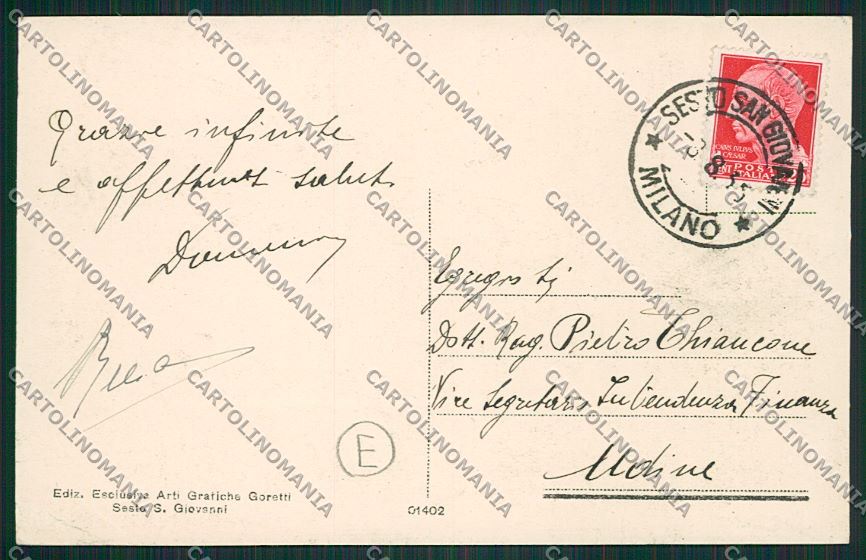 Grazie infinite
e affettuosi saluti
SESTO SAN GIOVANNI
MILANO
CAIUS IULIUS
CAESAR
POSTE
ITALIANE
Egregio Sig
Dott. Rag. Pietro Chiancone
Vice Segretario Intendenza Finanza
Udine
E
Ediz. Esclusiva Arti Grafiche Goretti
Sesto S. Giovanni
01402
CARTOLINOMANIA